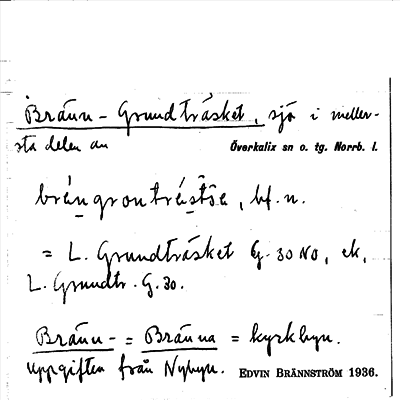 Bränn-Grundträsket, sjö i meller-
sta delen av Överkalix sn o. tg. Norrb. l.
bf. n.
= L. Grundträsket G. 30 NO, ek,
L. Grundtr. G. 30.
Bränn- = Bränna = kyrkbyn.
Uppgiften från Nybyn. EDVIN BRÄNNSTRÖM 1936.